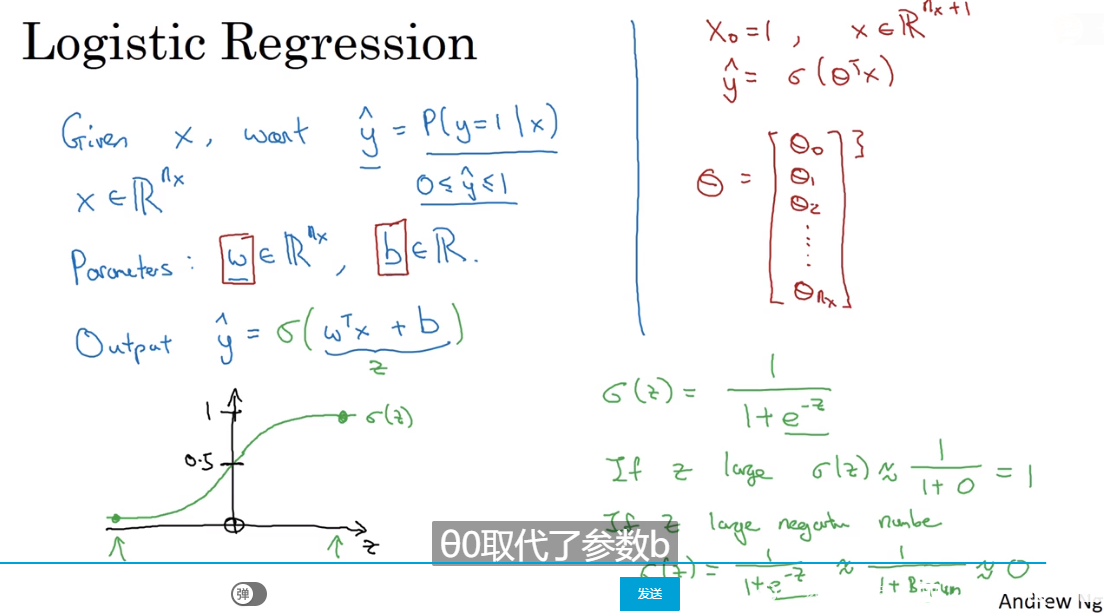 Logistic Regression
Given x, want ŷ = P(y=1|x)
0 ≤ ŷ ≤ 1
x ∈ ℝ^{n_x}
Parameters: w ∈ ℝ^{n_x}, b ∈ ℝ.
Output ŷ = σ(w^T x + b)
z
1
σ(z)
0.5
z
x_0 = 1, x ∈ ℝ^{n_x+1}
ŷ = σ(θ^T x)
θ = [θ_0
θ_1
θ_2
⋮
θ_{n_x}] }
σ(z) = 1 / (1 + e^{-z})
If z large σ(z) ≈ 1 / (1 + 0) = 1
If z large negative number
σ(z) = 1 / (1 + e^{-z}) ≈ 1 / (1 + Bignum) ≈ 0
θ0取代了参数b
弹
发送
Andrew Ng